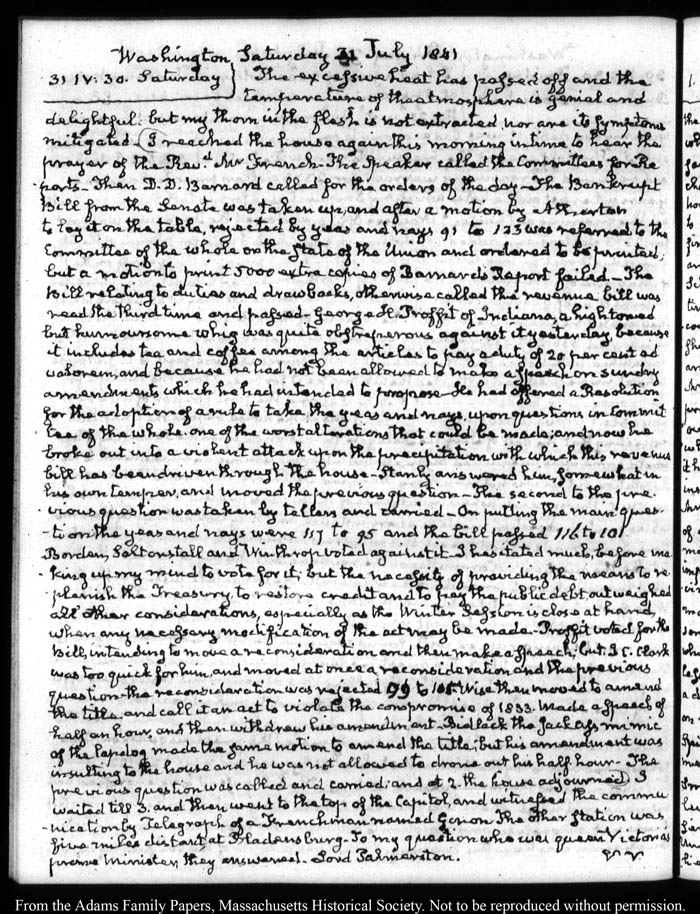 Washington Saturday 31 July 1841
31 IV: 30. Saturday } The excessive heat has passed off and the
temperature of the atmosphere is genial and
delightful: but my thorn in the flesh is not extracted nor are its symptoms
mitigated. I reached the house again this morning in time to hear the
prayer of the Rev.d Mr French. The Speaker called the Committees for Re
-ports. Then D. D. Barnard called for the orders of the day. The Bankrupt
Bill from the Senate was taken up, and after a motion by Atherton
to lay it on the table, rejected by yeas and nays 91 to 123 was referred to the
Committee of the whole on the State of the Union and ordered to be printed;
but a motion to print 5000 extra copies of Barnard's Report failed. The
Bill relating to duties and drawbacks, otherwise called the revenue bill was
read the third time and passed. George H. Proffit of Indiana, a hightoned
but humoursome whig was quite obstreperous against it yesterday, because
it includes tea and coffee among the articles to pay a duty of 20 per cent ad
valorem, and because he had not been allowed to make a speech on sundry
amendments which he had intended to propose. He had offered a Resolution
for the adoption of a rule to take the yeas and nays, upon questions in Commit
tee of the whole. one of the worst alterations that could be made; and now he
broke out into a violent attack upon the precipitation with which this revenue
bill has been driven through the house. Stanly answered him, somewhat in
his own temper, and moved the previous question. The second to the pre
-vious question was taken by tellers and carried. On putting the main ques-
-tion the yeas and nays were 117 to 95 and the bill passed 116 to 101
Borden, Saltonstall and Winthrop voted against it. I hesitated much, before ma
-king up my mind to vote for it; but the necessity of providing the means to re
-plenish the Treasury, to restore credit and to pay the public debt, outweighed
all other considerations, especially as the Winter Session is close at hand,
when any necessary modification of the act may be made. Proffit voted for the
bill, intending to move a reconsideration and then make a speech, but J. C. Clark
was too quick for him, and moved at once a reconsideration and the previous
question. the reconsideration was rejected 99 to 105. Wise then moved to amend
the title, and call it an act to violate the compromise of 1833. Made a speech of
half an hour, and then withdrew his amendment. Bidlack the Jackass mimic
of the lapdog made the same motion to amend the title; but his amendment was
insulting to the house and he was not allowed to drone out his half hour. The
previous question was called and carried; and at 2. the house adjourned. I
waited till 3. and then went to the top of the Capitol, and witnessed the commu
-nication by Telegraph of a Frenchman named Gonon. The other Station was
five miles distant, at Bladensburg. To my question who was queen Victoria's
prime Minister, they answered. Lord Palmerston.
From the Adams Family Papers, Massachusetts Historical Society. Not to be reproduced without permission.